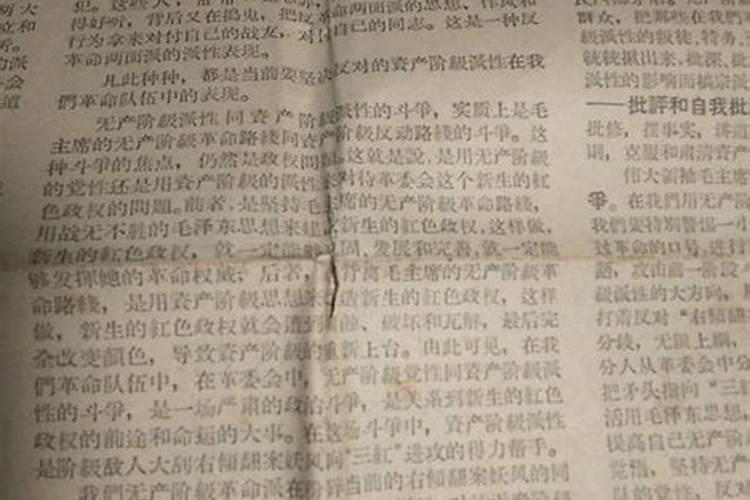 得好听，背后又在捣鬼，把反革命两面派的思想、作风和
行为拿来对付自己的战友，对付自己的同志。这是一种反
革命两面派的派性表现。
凡此种种，都是当前要坚决反对的資产阶級派性在我
們革命队伍中的表现。
无产阶級派性同資产阶級派性的斗爭，实质上是毛
主席的无产阶級革命路綫同資产阶級反动路綫的斗爭。这
种斗爭的焦点，仍然是政权問題。这就是說，是用无产阶級
的党性还是用資产阶級的派性来对待革委会这个新生的紅
色政权的問題。前者，是坚持毛主席的无产阶級革命路綫，
用战无不胜的毛泽东思想来建新生的紅色政权，这样做，
新生的紅色政权，就一定能巩固、发展和完善，就一定能
够发揮她的革命权威；后者，背离毛主席的无产阶級革
命路綫，是用資产阶級思想来改造新生的紅色政权，这样
做，新生的紅色政权就会遭到腐蝕、破坏和瓦解，最后完
全改变顏色，导致資产阶級的重新上台。由此可见，在我
們革命队伍中，在革委会中，无产阶級党性同資产阶級派
性的斗爭，是一场严肃的政治斗爭，是关系到新生的紅色
政权的前途和命运的大事。在这场斗爭中，資产阶級派性
是阶級敌人大刮右傾翻案妖风向“三紅”进攻的得力帮手。
我們无产阶級革命派在粉碎当前的右傾翻案妖风的同
群众，把那些在我們
級派性的叛徒、特务、
統統揪出来，批深、批
派性的影响而搞宗派
——批評和自我批
批修，摆事实，讲道
則，克服和肃清資产
伟大領袖毛主席
爭。在我們用无产
我們要特別警惕一小
过革命的口号，进行
語，攻击前一阶段
級派性的大方向，
打着反对“右傾翻
分歧，无限上綱，
分人从革委会中分
把矛头指向“三
活用毛泽东思想
提高自己无产阶
觉悟，坚持无产